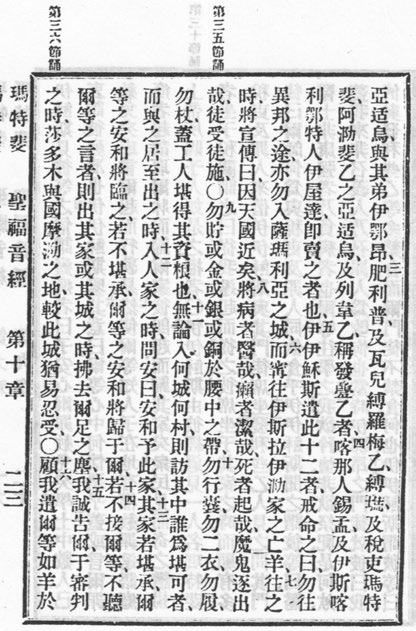 第三五節誦
第三六節誦
亞适烏、與其弟伊鄂昂肥利普、及瓦兒縛羅梅乙、縛瑪、及稅吏瑪特
斐、阿泐斐乙之亞适烏、及列韋乙稱發𤼵乙者、喀那人錫孟、及伊斯喀
利鄂特人伊屋達、卽賣之者也、五伊伊穌斯遣此十二者、戒命之曰、勿往
異邦之途、亦勿入薩瑪利亞之城、六而甯往伊斯拉伊泐家之亡羊、七往之
時、將宣傳曰、因天國近矣、八將病者醫哉、癩者潔哉、死者起哉、魔鬼逐出
哉、徒受徒施、○九勿貯或金或銀或銅於腰中之帶、十勿行囊、勿二衣、勿履、
勿杖、蓋工人堪得其資糧也、十一無論入何城何村、則訪其中誰爲堪可者、
而與之居、至出之時、十二入人家之時、問安曰、安和予此家、十三其家若堪承爾
等之安和、將臨之、若不堪承、爾等之安和、將歸于爾、十四若不接爾等、不聽
爾等之言者、則出其家或其城之時、拂去爾足之塵、十五我誠吿爾、于審判
之時、莎多木與國摩泐之地、較此城猶易忍受、○十六顧我遣爾等、如羊於
瑪特斐 聖福音經 第十章 二三